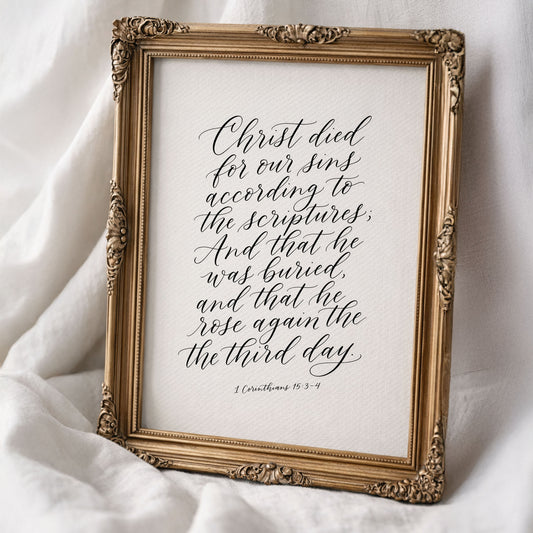 Christ died
for our sins
according to
the scriptures;
And that he
was buried,
and that he
rose again the
the third day.
1 Corinthians 15:3-4